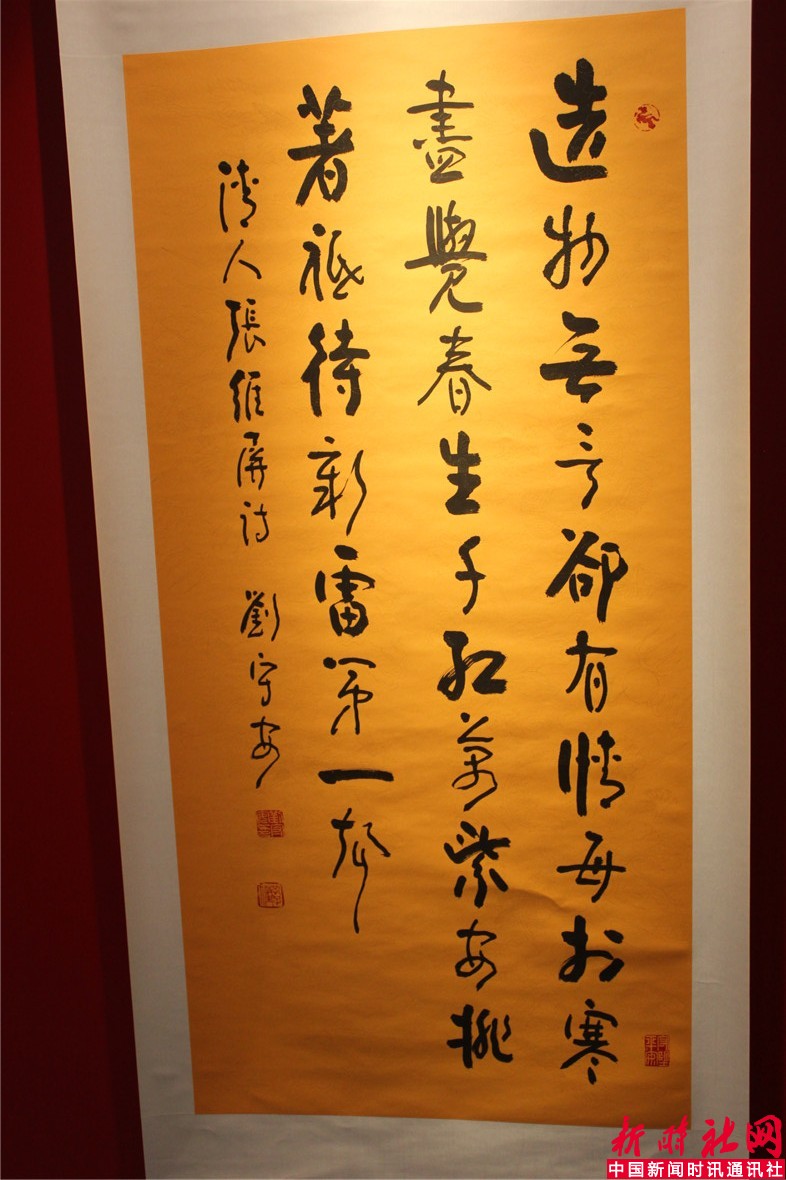 造物無言卻有情每於寒
盡覺春生千紅萬紫安排
著祗待新雷第一聲
清人張維屏詩 劉寧安
新时社网
中国新闻时讯通讯社